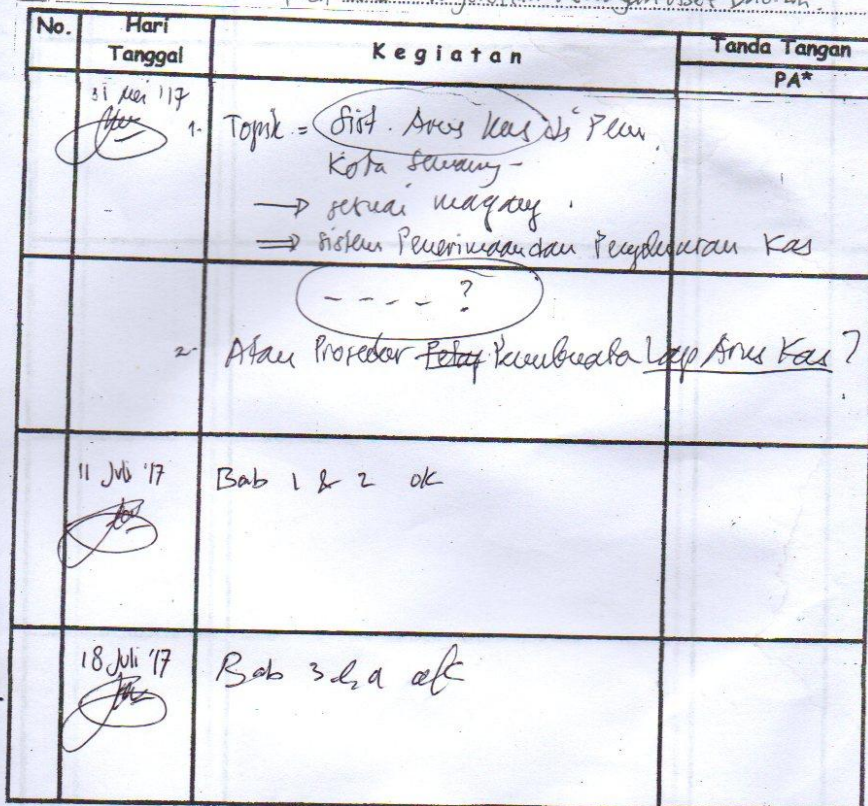 No. Hari Tanggal Kegiatan Tanda Tangan
PA*
31 Mei '17
1. Topik = Sist. Arus Kas di Pem.
Kota
→ sesuai magang.
⇒ sistem Penerimaan dan Pengeluaran Kas
- - - - ?
2. Atau Prosedur Pembuata Lap Arus Kas?
11 Juli '17 Bab 1 & 2 ok
18 Juli '17 Bab 3